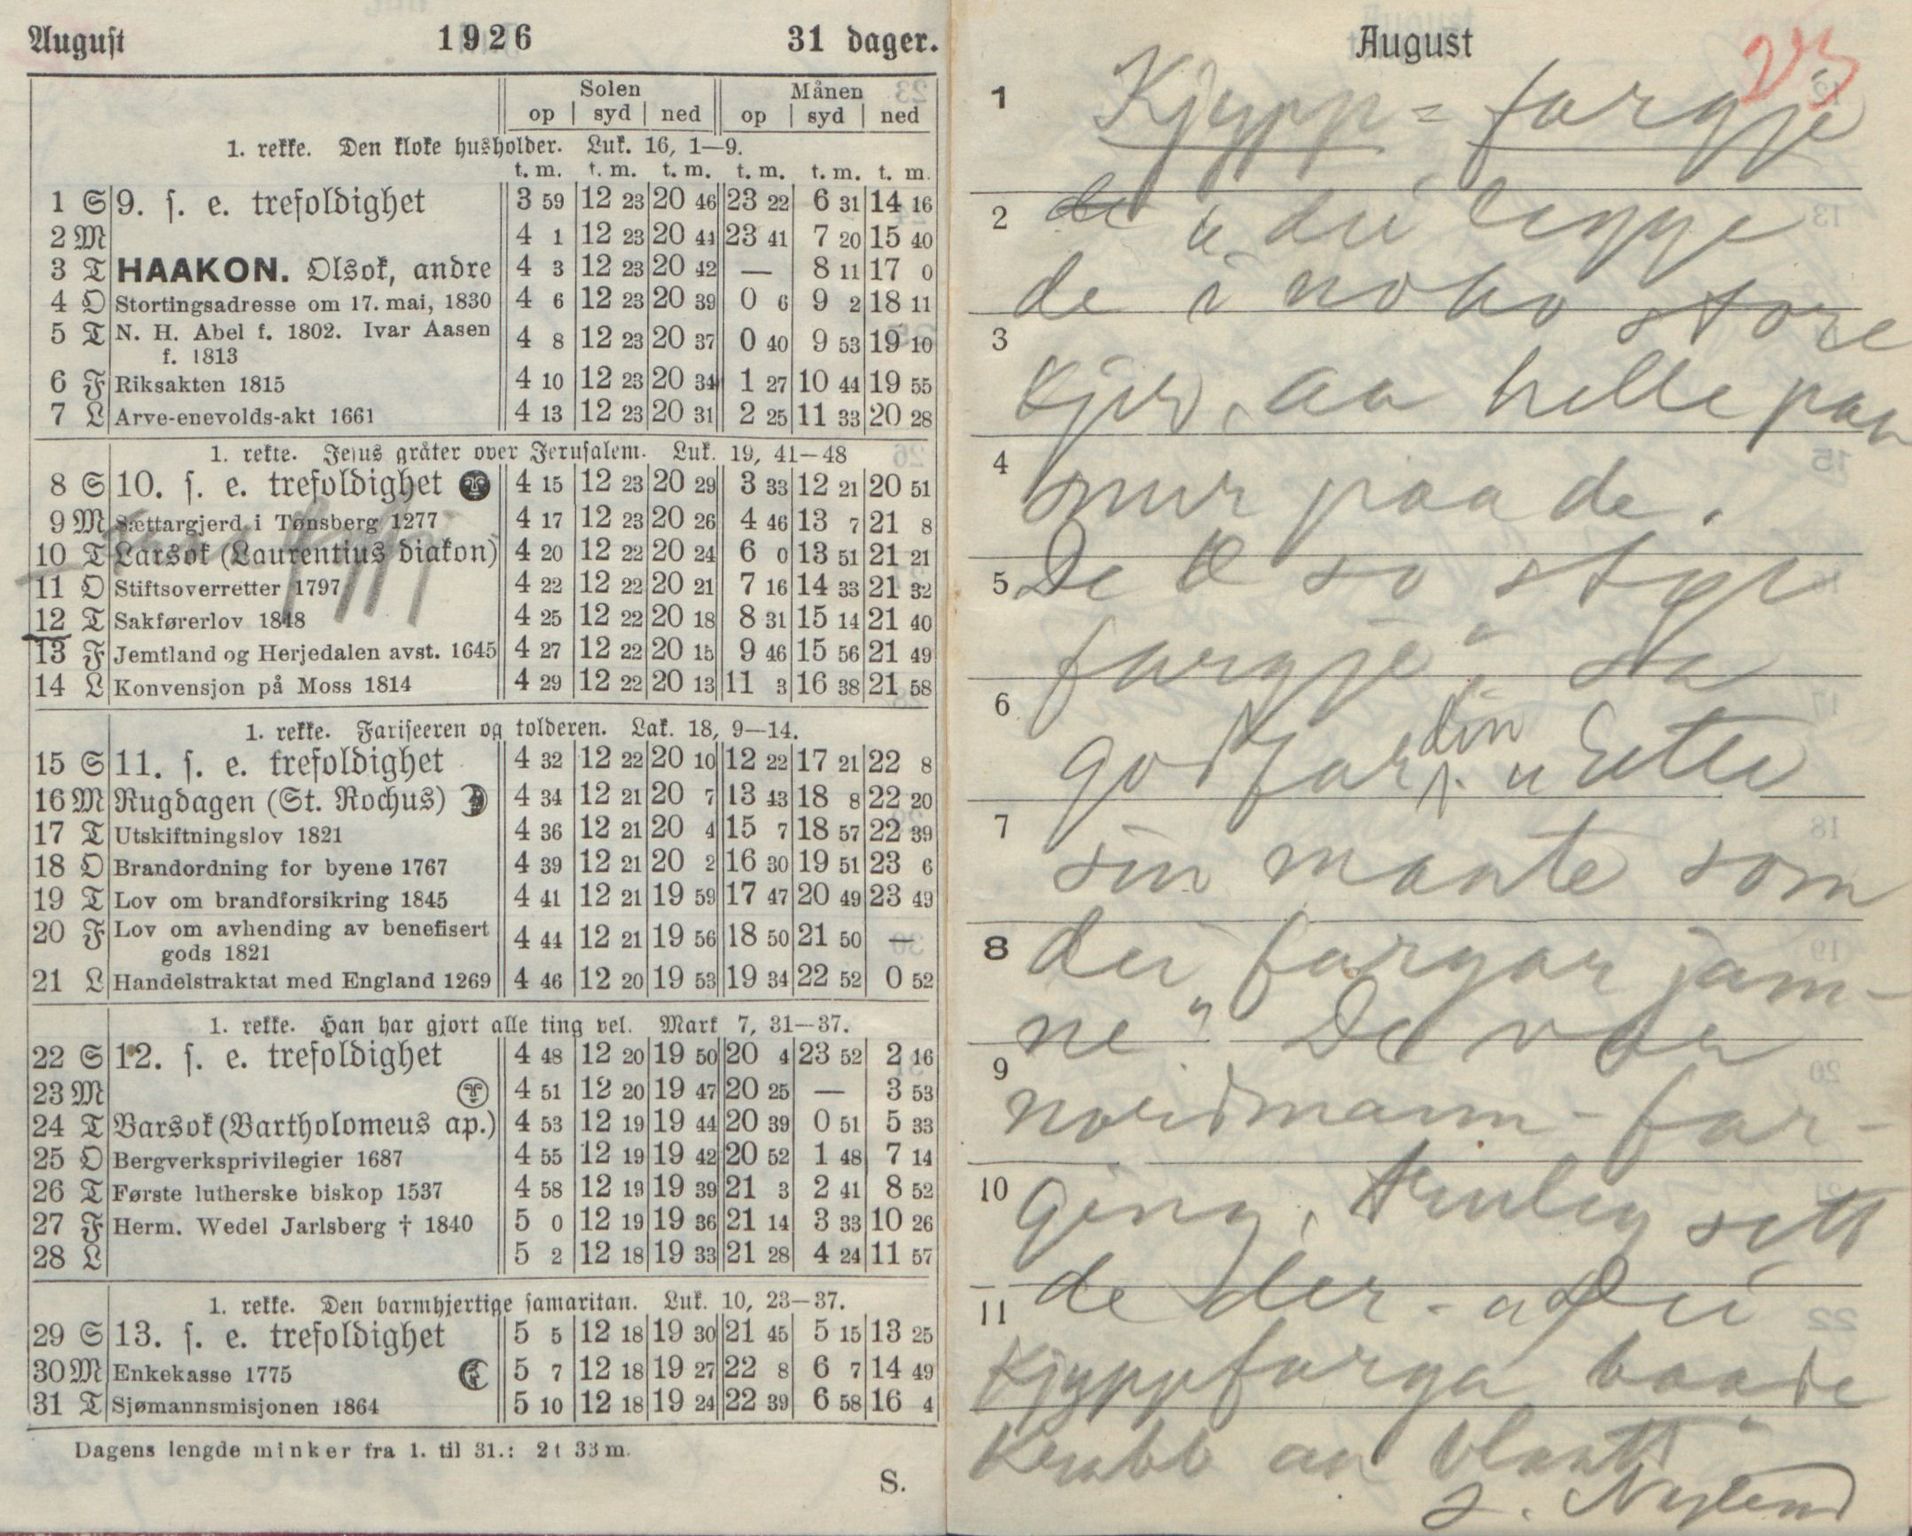 August 1926 31 dager.
Solen Månen
op syd ned op syd ned
1. rekke. Den kloke husholder. Luk. 16, 1—9.
t. m. t. m. t. m. t. m. t. m. t. m.
1 S 9. s. e. trefoldighet 3 59 12 23 20 46 23 22 6 31 14 16
2 M 4 1 12 23 20 44 23 41 7 20 15 40
3 T HAAKON. Olsok, andre 4 3 12 23 20 42 — 8 11 17 0
4 O Stortingsadresse om 17. mai, 1830 4 6 12 23 20 39 0 6 9 2 18 11
5 T N. H. Abel f. 1802. Ivar Aasen
f. 1813 4 8 12 23 20 37 0 40 9 53 19 10
6 F Riksakten 1815 4 10 12 23 20 34 1 27 10 44 19 55
7 L Arve-enevolds-akt 1661 4 13 12 23 20 31 2 25 11 33 20 28
1. rekke. Jesus gråter over Jerusalem. Luk. 19, 41—48
8 S 10. s. e. trefoldighet 4 15 12 23 20 29 3 33 12 21 20 51
9 M Sættargjerd i Tønsberg 1277 4 17 12 23 20 26 4 46 13 7 21 8
10 T Larsok (Laurentius diakon) 4 20 12 22 20 24 6 0 13 51 21 21
11 O Stiftsoverretter 1797 4 22 12 22 20 21 7 16 14 33 21 32
12 T Sakførerlov 1848 4 25 12 22 20 18 8 31 15 14 21 40
13 F Jemtland og Herjedalen avst. 1645 4 27 12 22 20 15 9 46 15 56 21 49
14 L Konvensjon på Moss 1814 4 29 12 22 20 13 11 3 16 38 21 58
1. rekke. Fariseeren og tolderen. Luk. 18, 9—14.
15 S 11. s. e. trefoldighet 4 32 12 22 20 10 12 22 17 21 22 8
16 M Rugdagen (St. Rochus) 4 34 12 21 20 7 13 43 18 8 22 20
17 T Utskiftningslov 1821 4 36 12 21 20 4 15 7 18 57 22 39
18 O Brandordning for byene 1767 4 39 12 21 20 2 16 30 19 51 23 6
19 T Lov om brandforsikring 1845 4 41 12 21 19 59 17 47 20 49 23 49
20 F Lov om avhending av benefisert
gods 1821 4 44 12 21 19 56 18 50 21 50 —
21 L Handelstraktat med England 1269 4 46 12 20 19 53 19 34 22 52 0 52
1. rekke. Han har gjort alle ting vel. Mark 7, 31—37.
22 S 12. s. e. trefoldighet 4 48 12 20 19 50 20 4 23 52 2 16
23 M 4 51 12 20 19 47 20 25 — 3 53
24 T Barsok (Bartholomeus ap.) 4 53 12 19 19 44 20 39 0 51 5 33
25 O Bergverksprivilegier 1687 4 55 12 19 19 42 20 52 1 48 7 14
26 T Første lutherske biskop 1537 4 58 12 19 19 39 21 3 2 41 8 52
27 F Herm. Wedel Jarlsberg † 1840 5 0 12 19 19 36 21 14 3 33 10 26
28 L 5 2 12 18 19 33 21 28 4 24 11 57
1. rekke. Den barmhjertige samaritan. Luk. 10, 23—37.
29 S 13. s. e. trefoldighet 5 5 12 18 19 30 21 45 5 15 13 25
30 M Enkekasse 1775 5 7 12 18 19 27 22 8 6 7 14 49
31 T Sjømannsmisjonen 1864 5 10 12 18 19 24 22 39 6 58 16 4
Dagens lengde minker fra 1. til 31.: 2 t 33 m.
S.
August 23
1 Kjypp = fargje
2 de " dei leggje
de i noko store
3 kjer, aa helle paa
4 paa de.
5 De æ so
fargje" sa
6 godfar din. "Ette
7 sin maate som
8 dei fargar jam-
ne" De var
9 nordmann-far-
10 ging, sett
11 de der - " Dei
kjyppfarga baade
aa blaatt"
. Nyland